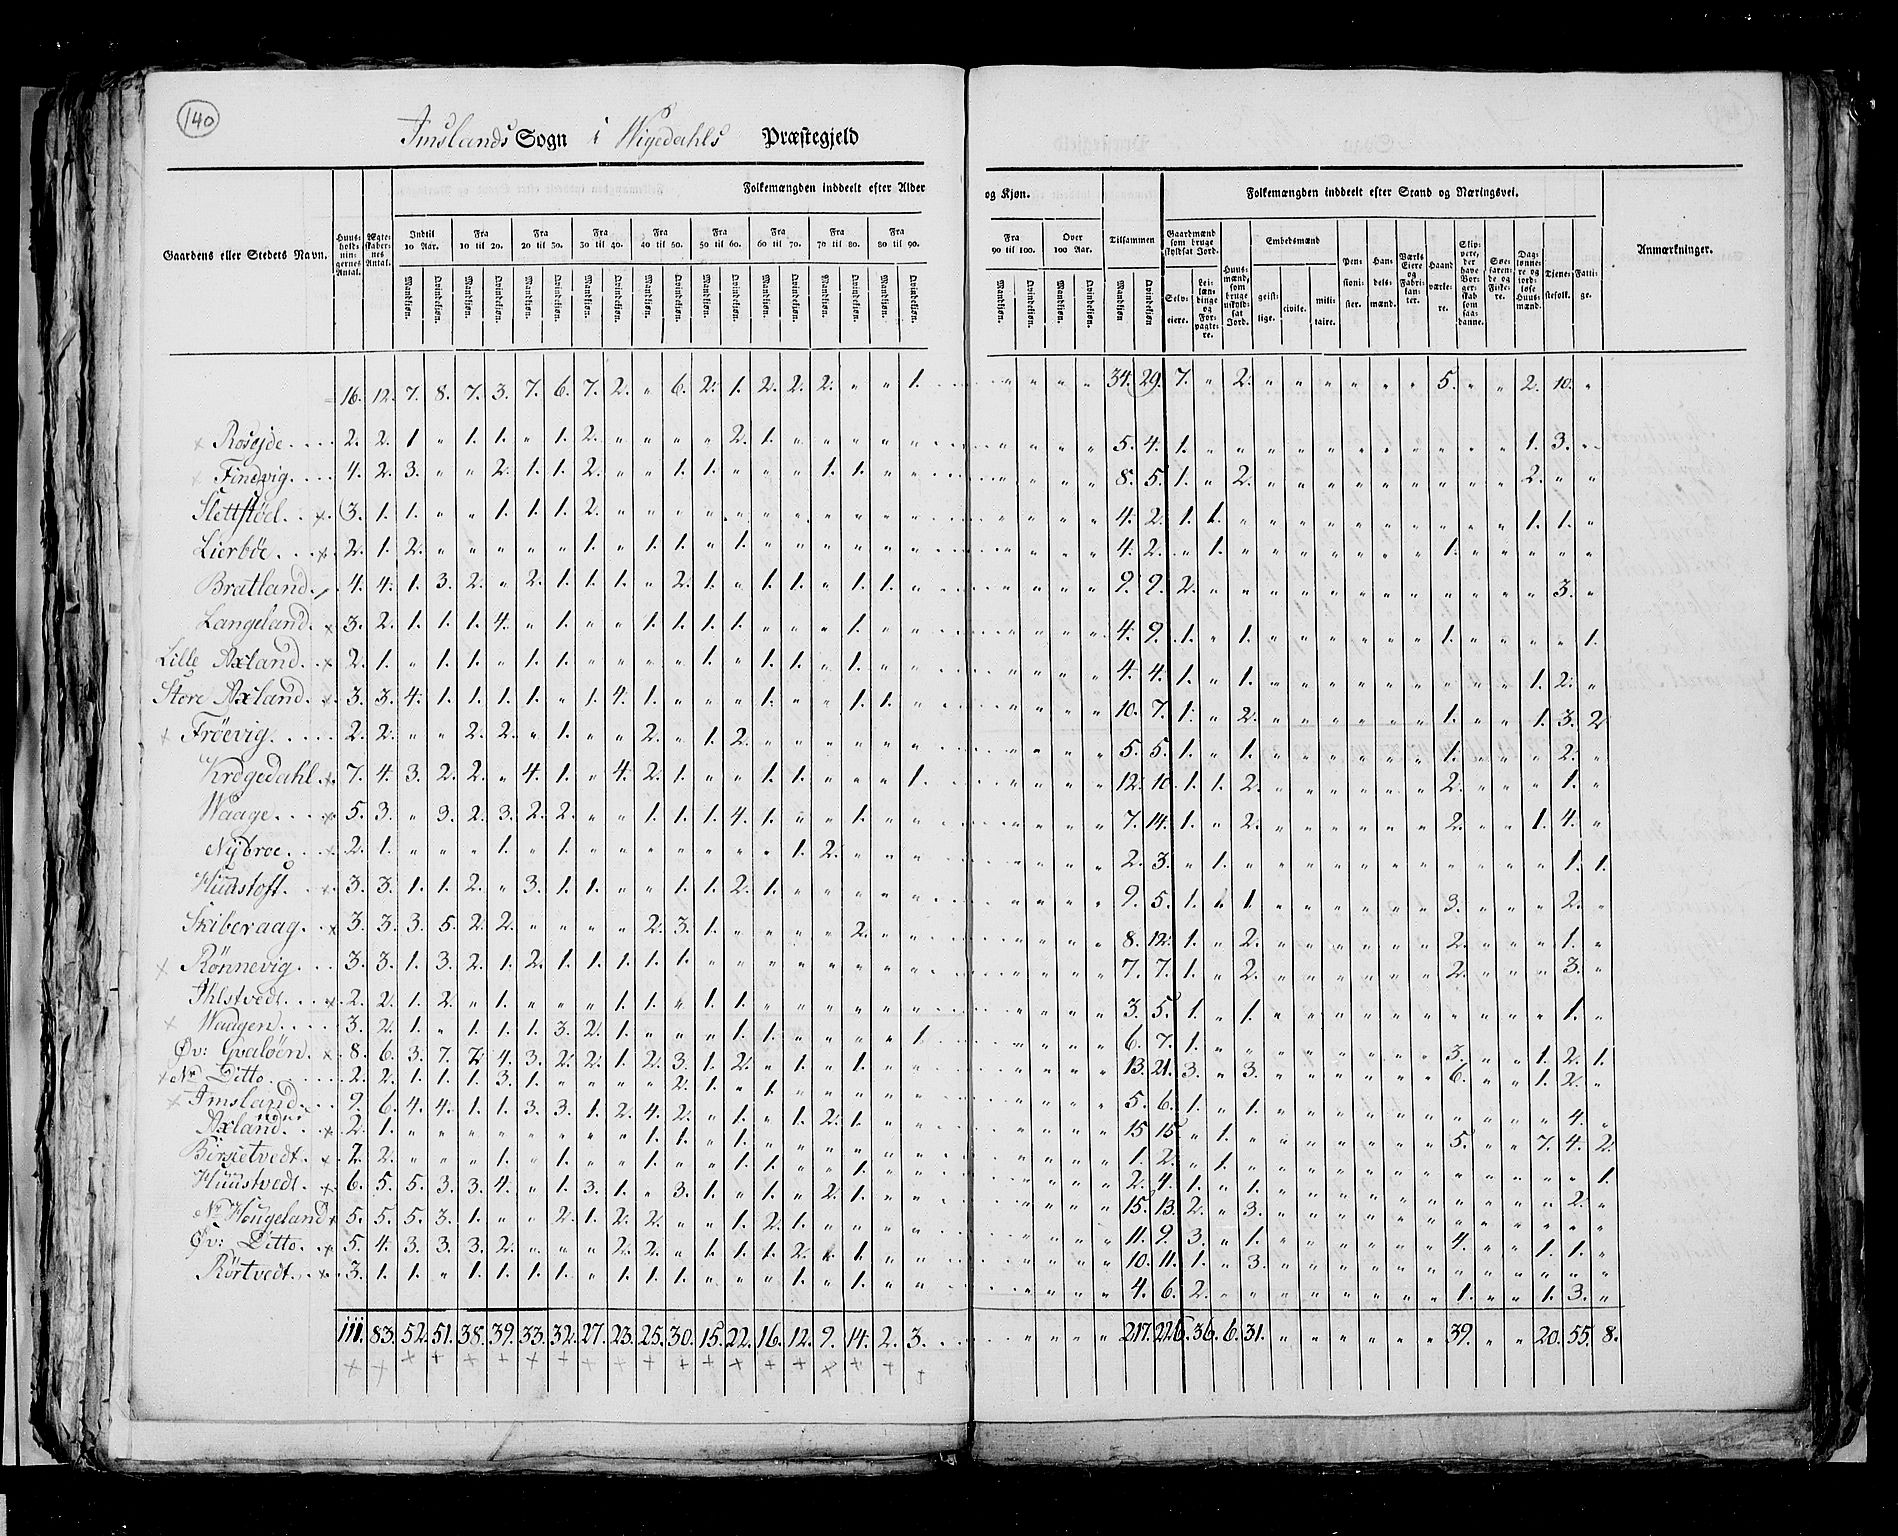 140
Imslands Sogn i Wigedahls Præstegjeld
Gaardens eller Stedets Navn. Huus-hold-nin-gernes Antal. Ægte-skaber-nes Antal. Folkemængden inddeelt efter Alder og Kjøn. Tilsammen Folkemængden inddeelt efter Stand og Næringsvei. Anmærkninger.
Indtil 10 Aar. Fra 10 til 20. Fra 20 til 30. Fra 30 til 40. Fra 40 til 50. Fra 50 til 60. Fra 60 til 70. Fra 70 til 80. Fra 80 til 90. Fra 90 til 100. Over 100 Aar.
Mandkjøn. Qvindekjøn. Mandkjøn. Qvindekjøn. Mandkjøn. Qvindekjøn. Mandkjøn. Qvindekjøn. Mandkjøn. Qvindekjøn. Mandkjøn. Qvindekjøn. Mandkjøn. Qvindekjøn. Mandkjøn. Qvindekjøn. Mandkjøn. Qvindekjøn. Mandkjøn. Qvindekjøn. Mandkjøn. Qvindekjøn. Mandkjøn Qvindekjøn
Gaardmænd som bruge skyldsat Jord. Selv-eiere. Lei-læn-dinge og For-pagte-re. Huus-mænd, som bruge uskyld-sat Jord. Embedsmænd geist-lige. civile. mili-taire. Pen-sioni-ster. Han-dels-mænd. Værks Eiere og Fabri-kan-ter. Haand værke-re. Skip-pere, der have Bor-ger-skab som saa-danne. Søe-farende og Fiske-re. Dag-lønne-re og jord-løse Huus-mænd. Tjene-stefolk. Fatti-ge.
16. 12. 7. 8. 7. 3. 7. 6. 7. 2. " 6. 2. 1. 2. 2. 2. " " 1. " " " " 34. 29. 7. " 2. " " " " " " 5. " " 2. 10. "
Rosejde. 2. 2. 1 " 1. 1. " 1. 2. " " " " 2. 1. " " " " " " " " " 5. 4. 1. " " " " " " " " " " " 1. 3. "
Findvig. 4. 2. 3. " " 2. 1. 1. 2. " " 1. 1. " " " 1. 1. " " " " " " 8. 5. 1. " 2. " " " " " " " " " 2. " "
Slettstöel. 3. 1. 1. " " 1. 1. 1. 2. " " " " " " " " " " " " " " " 4. 2. 1. 1. " " " " " " " " " " 1. 1. "
Lierböe. 2. 1. 2. " " " " " 1. " 1. 1. " 1. " " " " " " " " " " 4. 2. " 1. " " " " " " " 1. " " " " "
Bratland. 4. 4. 1. 3. 2. " 2. 1. 1. 1. " 2. 1. " 1. 1. " 1. 1. " " " " " 9. 9. 2. " " " " " " " " " " " " 3. "
Langeland. 3. 2. 1. 1. 1. 4. " 1. " " 1. 1. 1. 1. " " " 1. " " " " " " 4. 9. 1. " 1. " " " " " " 1. " " " " 1.
Lille Axland. 2. 1. " 1. 1. " 1. 1. " " " " 1. " 1. 1. " 1. " " " " " " 4. 4. 1. " 1. " " " " " " " " " 1. 2. "
Store Axland. 3. 3. 4. 1. 1. 1. 1. " 1. 4. 1. " " " 1. " " 1. 1. " " " " " 10. 7. 1. " 2. " " " " " " 1. " " 1. 3. 2.
Fröevig. 2. 2. " " 2. 2. " 1. " " 2. " 1. 2. " " " " " " " " " " 5. 5. 1. " 1. " " " " " " 1. " " " 2. "
Krogedahl. 7. 4. 3. 2. 2. " 4. 1. " 4. 2. 1. " " 1. 1. " " " 1. " " " " 12. 10. 1. 1. 2. " " " " " " 2. " " " 1. "
Waage. 5. 3. " 3. 2. 3. 2. 2. " " 1. 1. 1. 4. 1. " " 1. " " " " " " 7. 14. 1. " 2. " " " " " " 2. " " 1. 4. "
Nybroe. 2. 1. " " " 1. " 1. " " " " " " " 1. 2. " " " " " " " 2. 3. " 1. " " " " " " " " " " " 1. 1.
Huustoft. 3. 3. 1. 1. 2. " 3. 1. 1. " " 1. 1. 2. 1. " " " " " " " " " 9. 5. 1. 1 " " " " " " 3. " " " 2. "
Skiberaag. 3. 3. 3. 5. 2. 2. " " " " 2. 3. 1. " " " " 2. " " " " " " 8. 12. 1. " 2. " " " " " " 2. " " " 1. "
Rönnevig. 3. 3. 1. 3. 2. 1. 2. 1. 1. 1. 1. 1. " " " " " " " " " " " " 7. 7. 1. " 2. " " " " " " 2. " " " 3. "
Ihlstvedt. 2. 2. 1. 2. " 1. " " " 1. 1. " 1. 1. " " " " " " " " " " 3. 5. 1. " 1. " " " " " " " " " " 1. "
Waagen. 3. 2. 1. " 1. 1. 1. 3. 2. 1. " " " 1. 1. " " " " 1. " " " " 6. 7. 1. " " " " " " " " 3. " " 1. 2. 1.
Øv: Gvalöen. 8. 6. 3. 7. 7. 4. 3. 2. 2. 1. 2. 3. 1. 2. " 1. " 1. " " " " " " 13. 21. 3. " 3. " " " " " " 6. " " 1. 2. "
Nr. Ditto. 2. 2. 1. 1. 1. 3. 1. " " " " 2. 1. " 1. " " " " " " " " " 5. 6. 1. " 1. " " " " " " " " " " 4. "
Imsland. 9. 6. 4. 4. 1. 1. 3. 3. 1. 2. 4. 2. " 1. " 1. 2. 1. " " " " " " 15 15. " 1. " " " " " " " 5. " " 7. 4. 2.
Axland. 2. 1. " " " " " " " " 1. 1. " 1. " " " " " " " " " " 1. 2. " 1. " " " " " " " " " " " " 1.
Börsietvedt. 2. 2. " " " 1. " 1. " " 1. " " 1. 1. " " 1. " " " " " " 2. 4. 1. " 1. " " " " " " " " " " 2. "
Huustvedt. 6. 5. 5. 3. 3. 4. " 1. 3. 1. " 3. 1. " 1. " 2. 1. " " " " " " 15. 13. 2. " 3. " " " " " " 4. " " 1. 1. "
Nr. Hougeland 5. 5. 5. 3. 1. " " 2. 1. 2. 2. " " 1. 2. 1. " " " " " " " " 11. 9. 3. " 1. " " " " " " " " " " " "
Øv: Ditto. 5. 4. 3. 3. 3. 2. " " " 2. 2. " 1. 1. 1. 2. " 1. " " " " " " 10. 11. 1. " 3. " " " " " " " " " " " "
Rörtvedt. 3. 1. 1. " 1. 1. 1. 1. " 1. 1. 1. " " " 1. " 1. " " " " " " 4. 6. 2. " " " " " " " " 1. " " 1. 3. "
111. 83. 52. 51. 38. 39. 33. 32. 27. 23. 25. 30. 15. 22. 16. 12. 9. 14. 2. 3. " " " " 217. 226. 36. 6. 31. " " " " " " 39. " " 20. 55. 8.